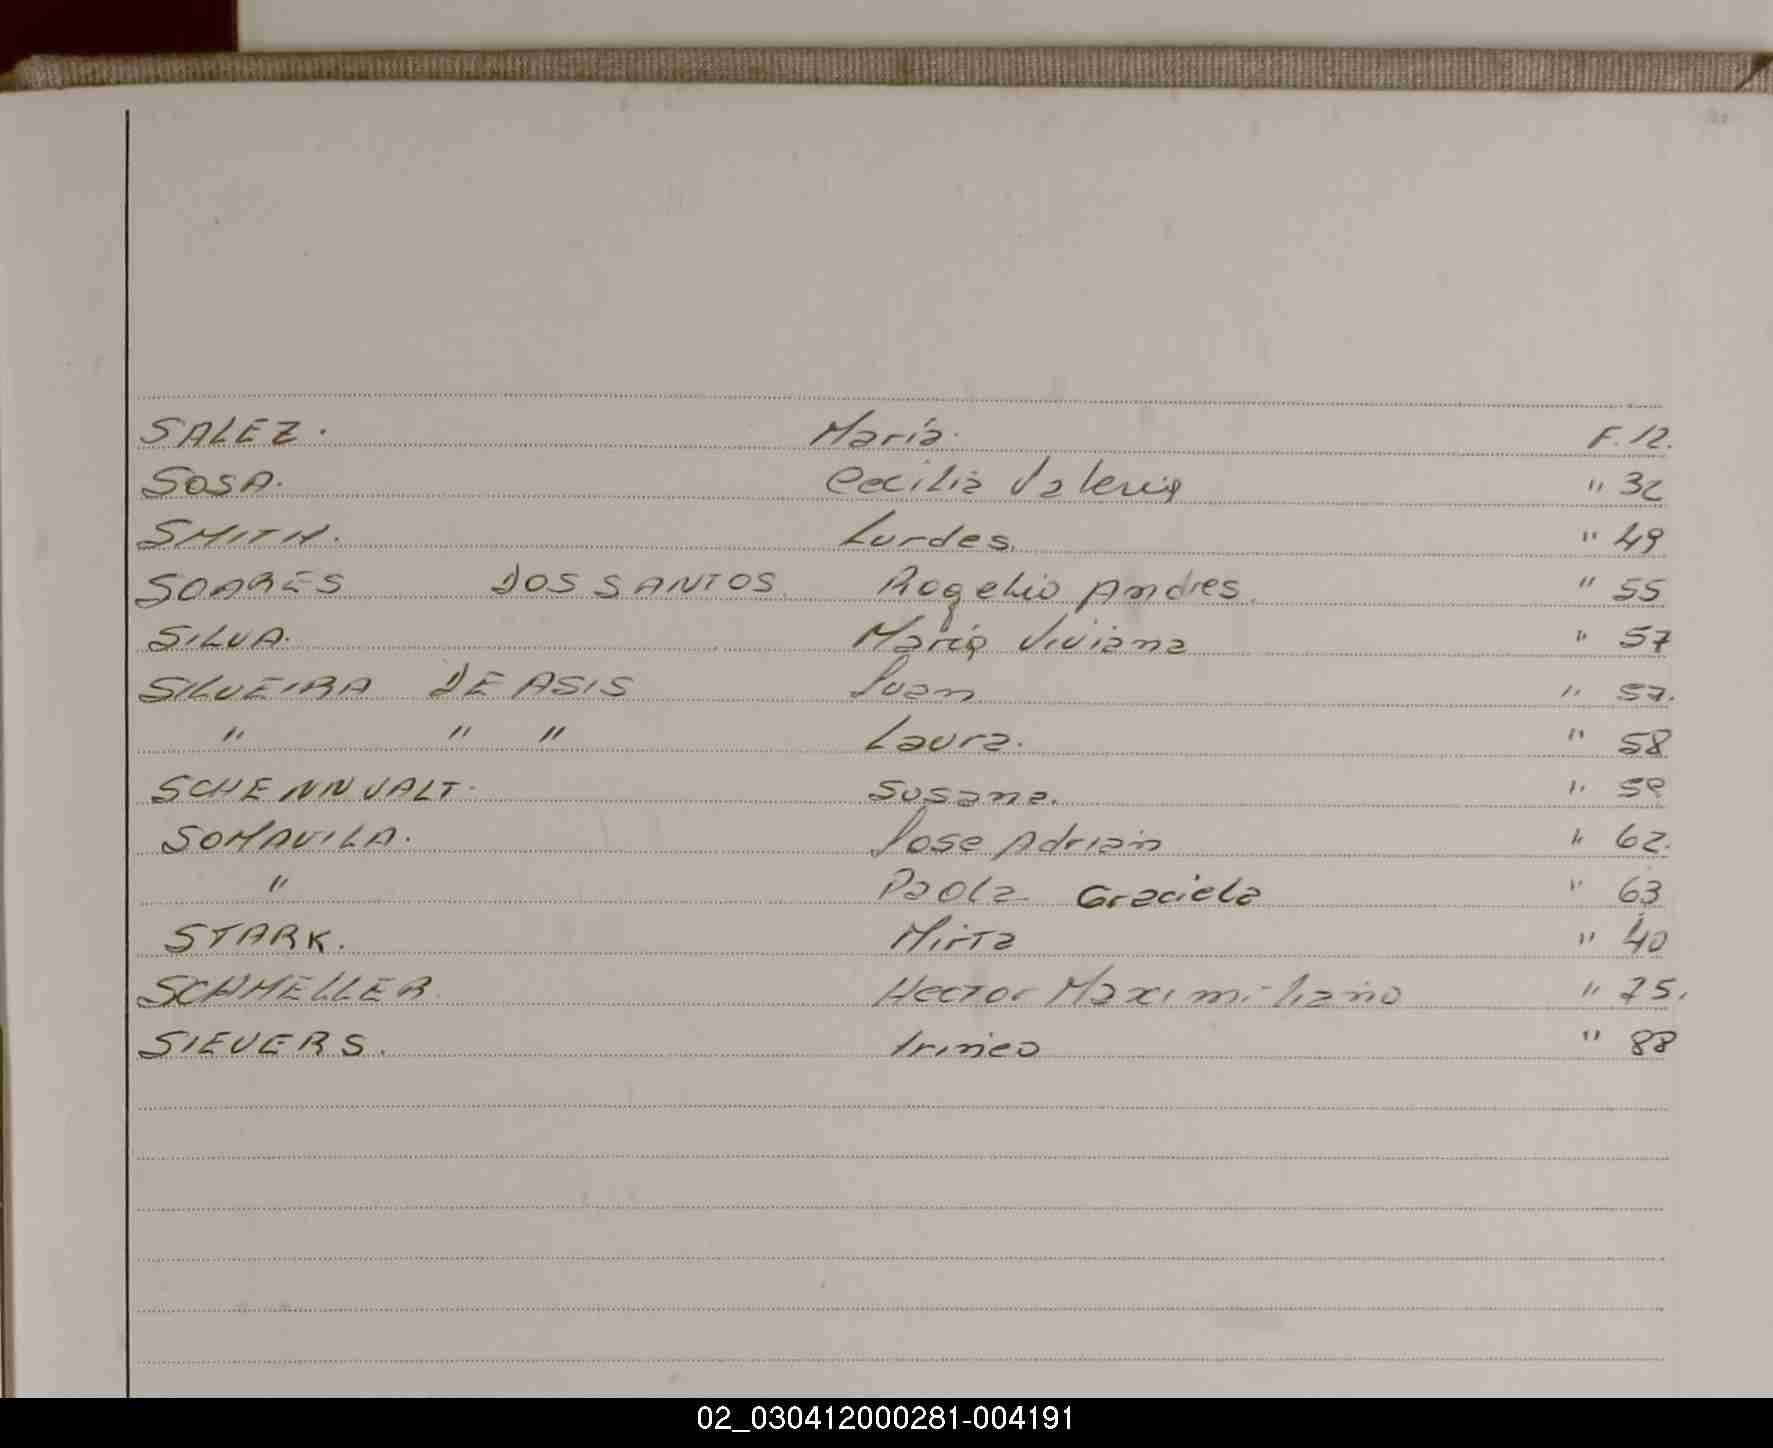 SALEZ. María. F. 12.
SOSA. Cecilia Valeria " 32
SMITH. Lurdes. " 49
SOARES DOS SANTOS. Rogelio Andres. " 55
SILVA. María Viviana " 57
SILVEIRA DE ASIS Juan " 57.
" " " Laura. " 58
SCHENNVALT. Susana. " 59
SOMAVILA. Jose Adrián " 62.
" Paola Graciela " 63
STARK. Mirta " 40
SCHMELLER. Hector Maximiliano " 75.
SIEVERS. Irineo " 88
02_030412000281-004191